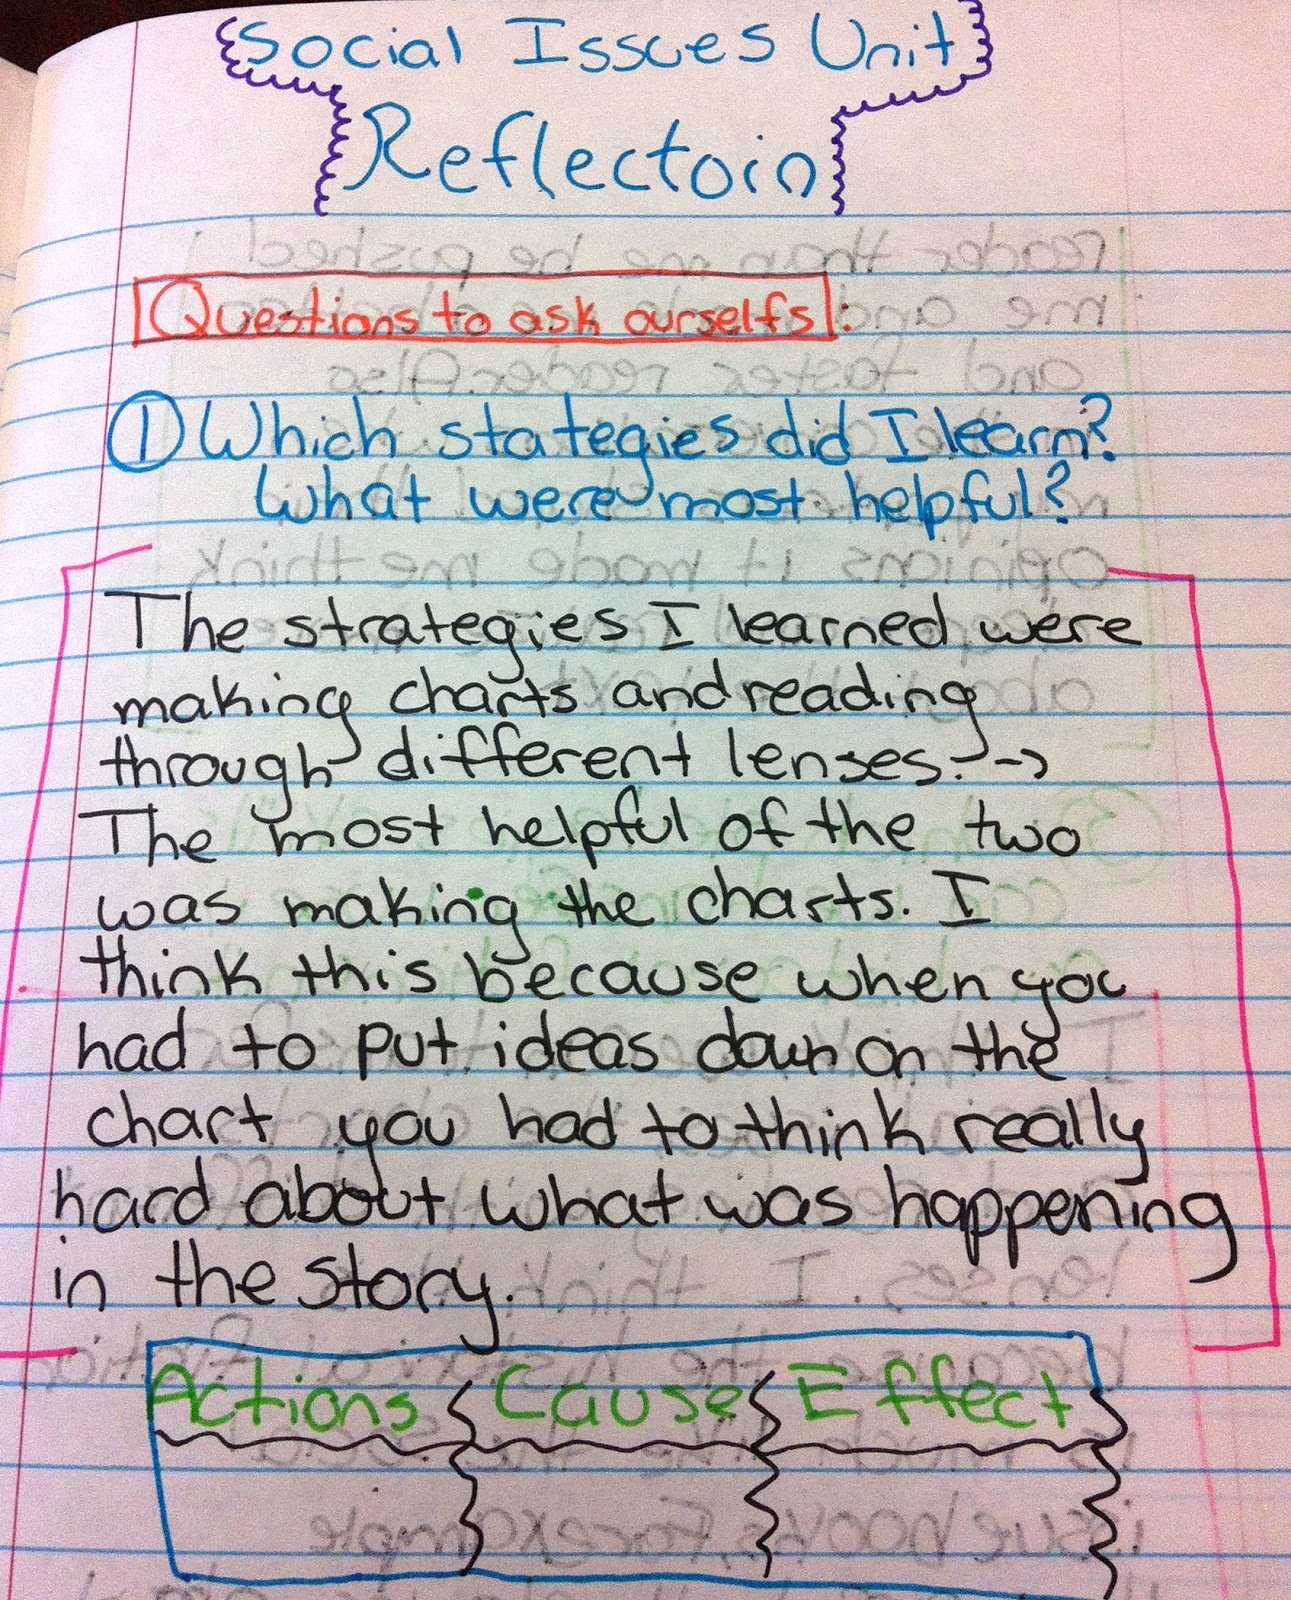 Social Issues Unit
Reflectoin
Questions to ask ourselfs:
① Which stategies did I learn?
What were most helpful?
The strategies I learned were
making charts and reading
through different lenses. →
The most helpful of the two
was making the charts. I
think this because when you
had to put ideas down on the
chart you had to think really
hard about what was happening
in the story.
Actions Cause Effect